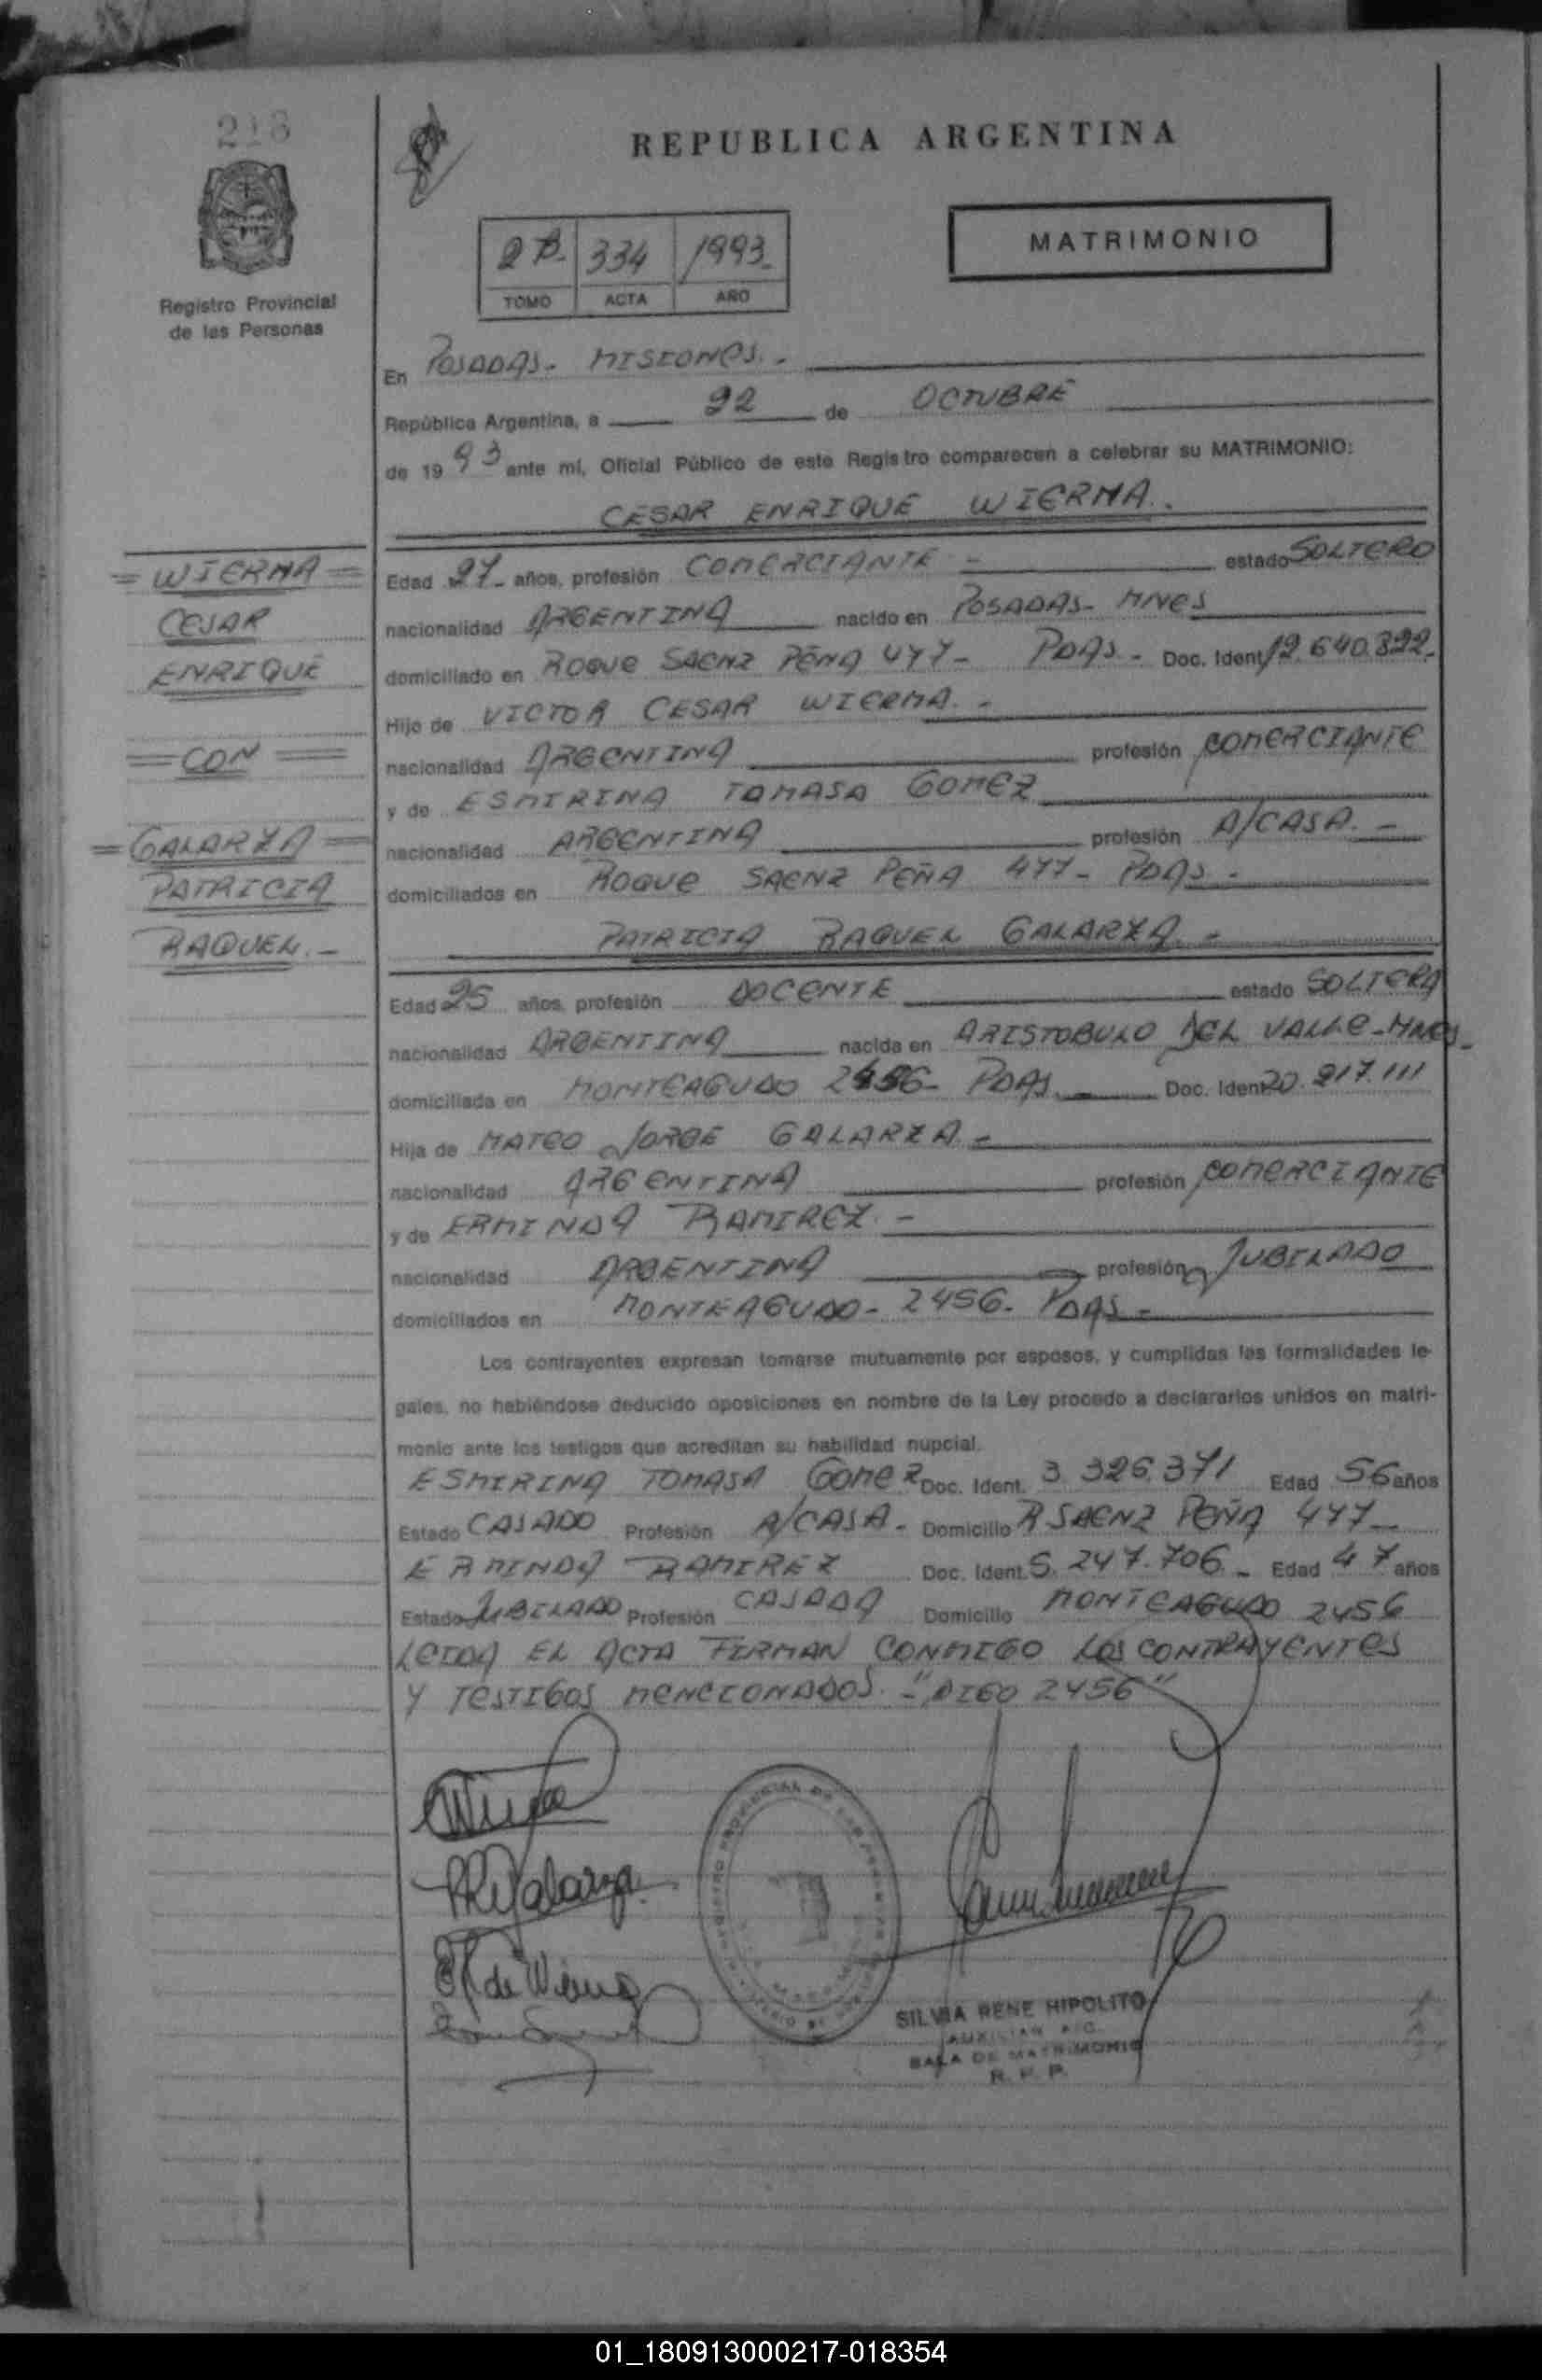 218
REPUBLICA ARGENTINA
MATRIMONIO
2º B. 334 1993.
TOMO ACTA AÑO
Registro Provincial
de las Personas
En POSADAS - MISIONES. -
República Argentina, a 22 de OCTUBRE
de 1993 ante mí, Oficial Público de este Registro comparecen a celebrar su MATRIMONIO:
CESAR ENRIQUE WIERMA.
= WIERMA =
CESAR
ENRIQUE
= CON =
= GALARZA =
PATRICIA
RAQUEL. -
Edad 27 - años, profesión COMERCIANTE - estado SOLTERO
nacionalidad ARGENTINA nacido en POSADAS - MNES
domiciliado en ROQUE SAENZ PEÑA 477 - PDAS - Doc. Ident. 12.640.822.
Hijo de VICTOR CESAR WIERMA. -
nacionalidad ARGENTINA profesión COMERCIANTE
y de ESMIRINA TOMASA GOMEZ
nacionalidad ARGENTINA profesión A/CASA. -
domiciliados en ROQUE SAENZ PEÑA 477 - PDAS -
PATRICIA RAQUEL GALARZA -
Edad 25 años, profesión DOCENTE estado SOLTERA
nacionalidad ARGENTINA nacida en ARISTOBULO DEL VALLE - MNES -
domiciliada en MONTEAGUDO 2456 - PDAS Doc. Ident. 20.217.111
Hija de MATEO JORGE GALARZA -
nacionalidad ARGENTINA profesión COMERCIANTE
y de ERMINDA RAMIREZ. -
nacionalidad ARGENTINA profesión JUBILADO
domiciliados en MONTEAGUDO - 2456 - PDAS -
Los contrayentes expresan tomarse mutuamente por esposos, y cumplidas las formalidades le-
gales, no habiéndose deducido oposiciones en nombre de la Ley procedo a declararlos unidos en matri-
monio ante los testigos que acreditan su habilidad nupcial.
ESMIRINA TOMASA GOMEZ Doc. Ident. 3.326.371 Edad 56 años
Estado CASADO Profesión A/CASA - Domicilio R SAENZ PEÑA 477 -
ERMINDA RAMIREZ Doc. Ident. 5.247.706 - Edad 47 años
Estado JUBILADO Profesión CASADA Domicilio MONTEAGUDO 2456
LEIDA EL ACTA FIRMAN CONMIGO LOS CONTRAYENTES
Y TESTIGOS MENCIONADOS. - "DIGO 2456"
SILVIA RENE HIPOLITO
AUXILIAR A/C.
SALA DE MATRIMONIO
R. P. P.
01_180913000217-018354